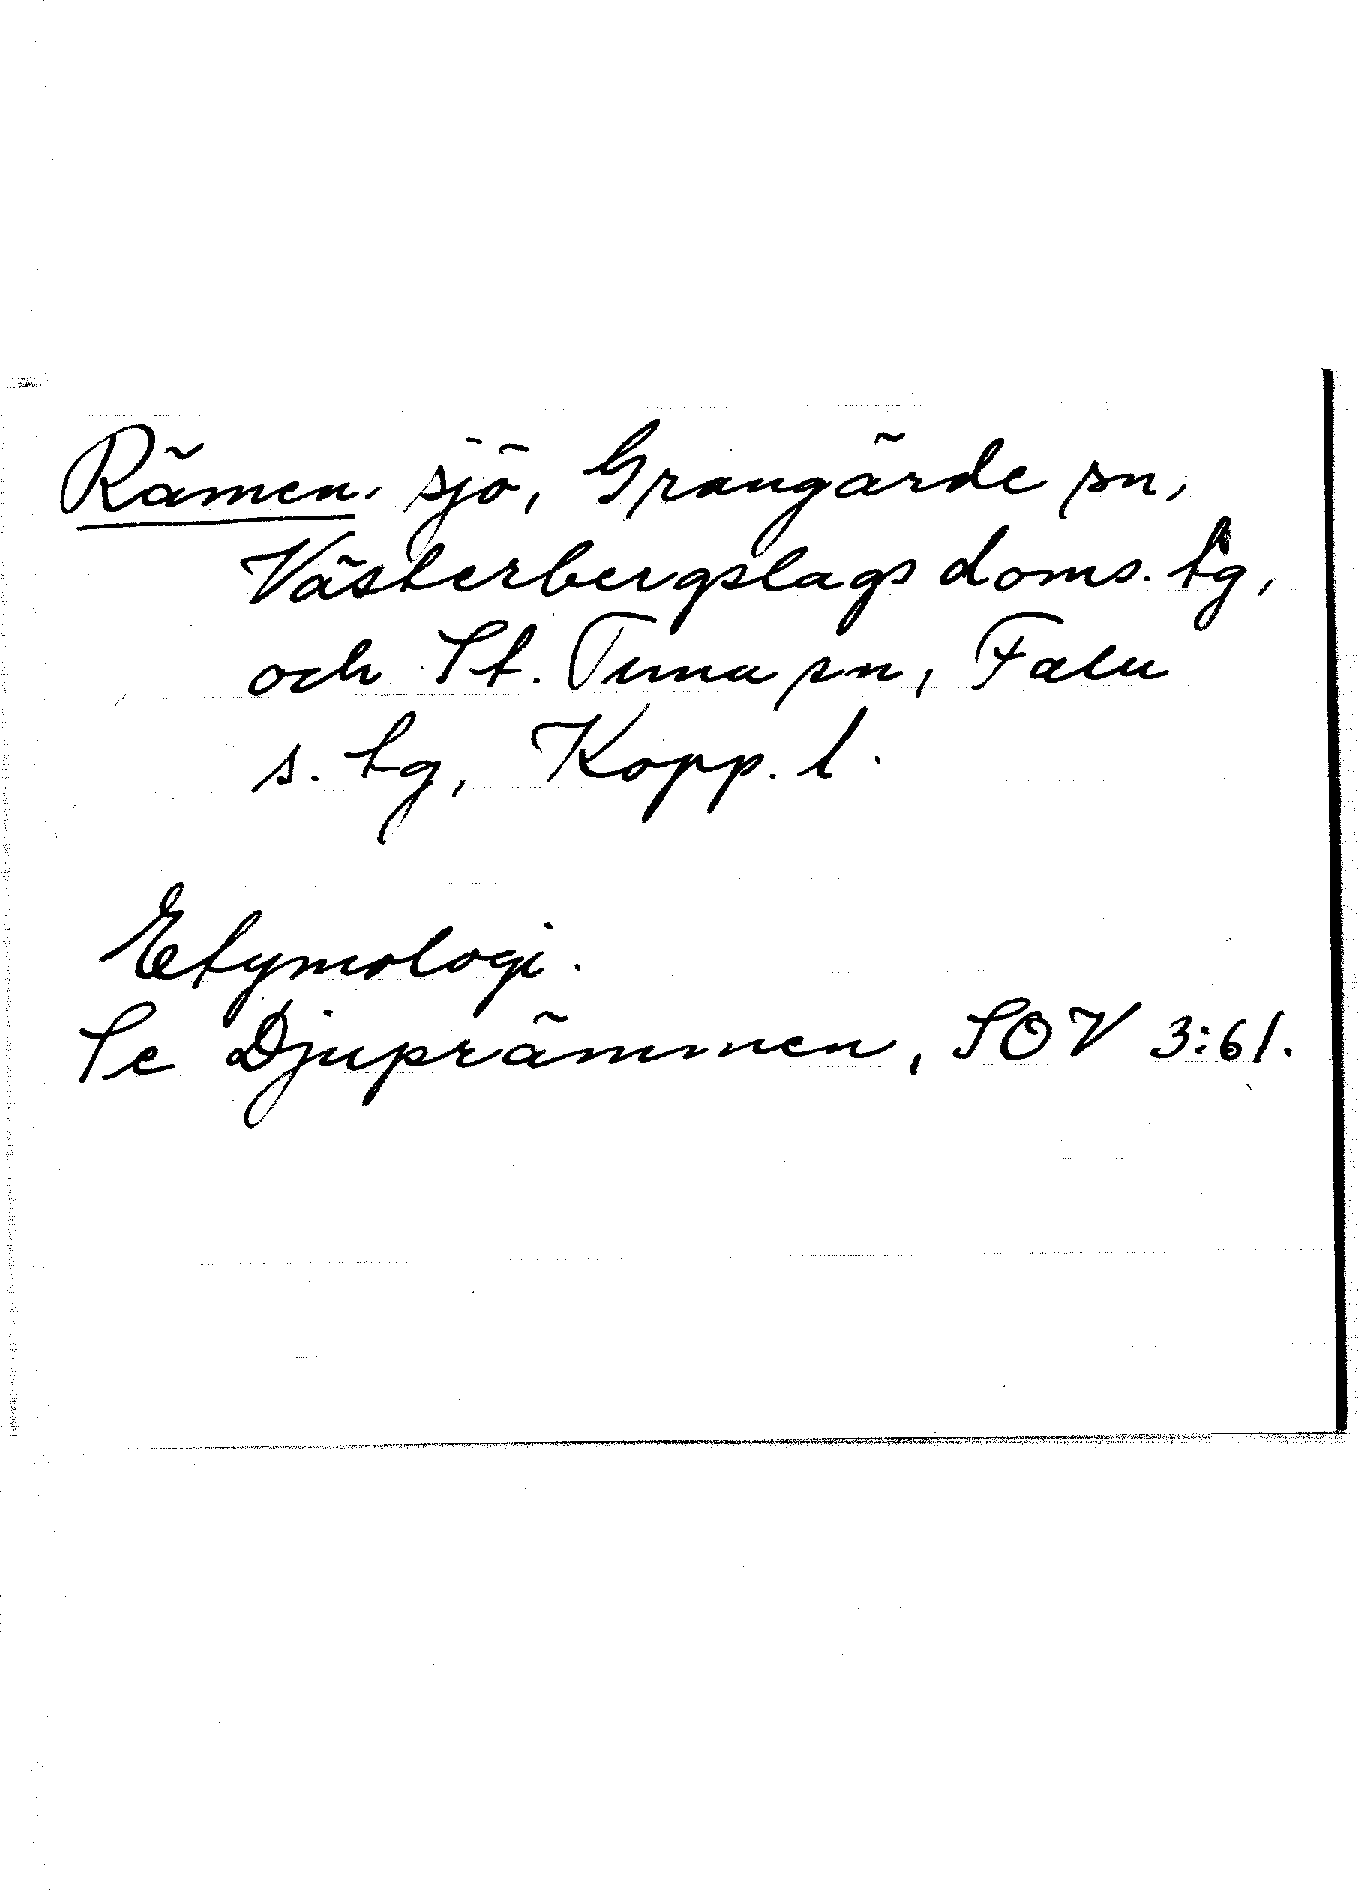 Rämen, sjö, Grangärde sn,
Västerbergslags doms. tg,
och St. Tuna sn, Falu
s. tg, Kopp. l.
Etymologi.
Se Djuprämmen, SOV 3:61.